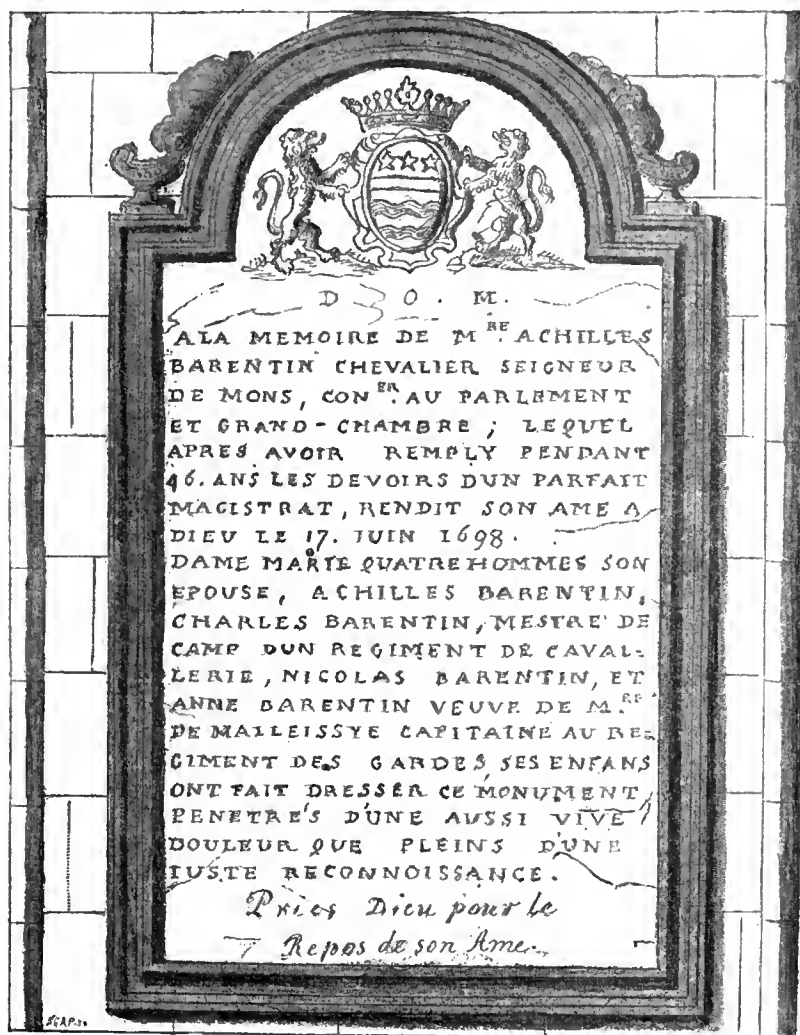 D . O . M .
A LA MEMOIRE DE M^RE. ACHILLES
BARENTIN CHEVALIER SEIGNEUR
DE MONS, CON^ER. AU PARLEMENT
ET GRAND-CHAMBRE ; LEQUEL
APRES AVOIR REMPLY PENDANT
46. ANS LES DEVOIRS DUN PARFAIT
MAGISTRAT, RENDIT SON AME A
DIEU LE 17. JUIN 1698.
DAME MARIE QUATREHOMMES SON
EPOUSE, ACHILLES BARENTIN,
CHARLES BARENTIN, MESTRE DE
CAMP DUN REGIMENT DE CAVAL-
LERIE, NICOLAS BARENTIN, ET
ANNE BARENTIN VEUVE DE M.^RE
DE MALLEISSYE CAPITAINE AU RE-
GIMENT DES GARDES, SES ENFANS
ONT FAIT DRESSER CE MONUMENT
PENETRE'S D'UNE AUSSI VIVE
DOULEUR QUE PLEINS D'UNE
IUSTE RECONNOISSANCE.
Pries Dieu pour le
Repos de son Ame.